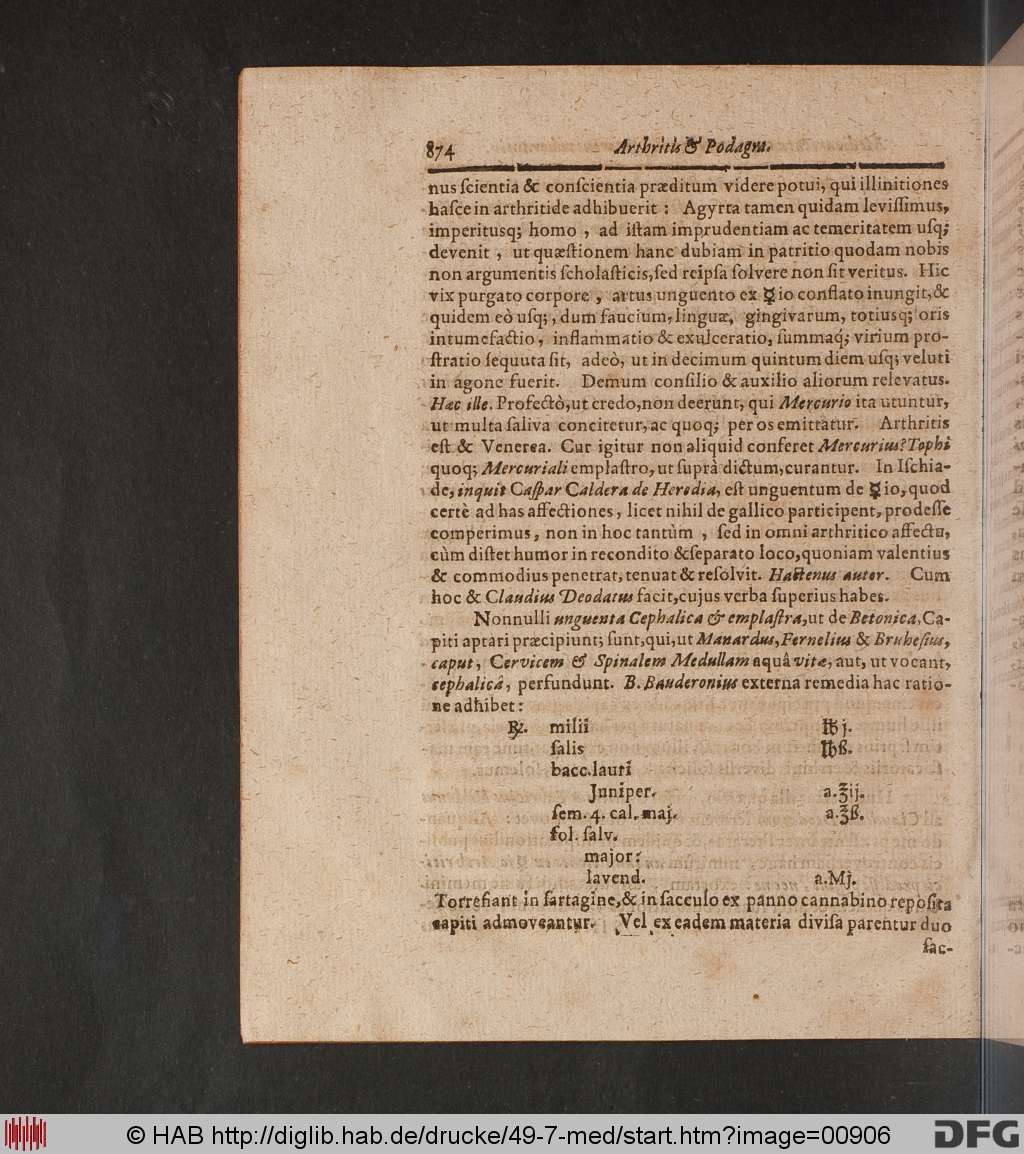 874 Arthritis & Podagra.
nus ſcientia & conſcientia præditum videre potui, qui illinitiones
haſce in arthritide adhibuerit : Agyrta tamen quidam leviſſimus,
imperitusq; homo , ad iſtam imprudentiam ac temeritatem uſq;
devenit , ut quæſtionem hanc dubiam in patritio quodam nobis
non argumentis ſcholaſticis, ſed reipſa ſolvere non ſit veritus. Hic
vix purgato corpore , artus unguento ex ☿io conflato inungit, &
quidem eò uſq; , dum faucium, linguæ, gingivarum, totiusq; oris
intumefactio, inflammatio & exulceratio, ſummaq́; virium pro-
ſtratio ſequuta ſit, adeò, ut in decimum quintum diem uſq; veluti
in agone fuerit. Demum conſilio & auxilio aliorum relevatus.
Hæc ille. Profectò, ut credo, non deerunt, qui Mercurio ita utuntur,
ut multa ſaliva concitetur, ac quoq; per os emittatur. Arthritis
eſt & Venerea. Cur igitur non aliquid conferet Mercurius? Tophi
quoq; Mercuriali emplaſtro, ut ſuprà dictum, curantur. In Iſchia-
de, inquit Caſpar Caldera de Heredia, eſt unguentum de ☿io, quod
certè ad has affectiones, licet nihil de gallico participent, prodeſſe
comperimus, non in hoc tantùm , ſed in omni arthritico affectu,
cùm diſtet humor in recondito & ſeparato loco, quoniam valentius
& commodius penetrat, tenuat & reſolvit. Hactenus autor. Cum
hoc & Claudius Deodatus facit, cujus verba ſuperius habes.
Nonnulli unguenta Cephalica & emplaſtra, ut de Betonica, Ca-
piti aptari præcipiunt; ſunt, qui, ut Manardus, Fernelius & Bruheſius,
caput, Cervicem & Spinalem Medullam aquâ vitæ, aut, ut vocant,
cephalicâ, perfundunt. B. Bauderonius externa remedia hac ratio-
ne adhibet:
℞. milii ℔j.
ſalis ℔ß.
bacc. lauri
Juniper. a.℥ij.
ſem. 4. cal. maj. a.℥ß.
fol. ſalv.
major:
lavend. a.Mj.
Torrefiant in ſartagine, & in ſacculo ex panno cannabino repoſita
capiti admoveantur. Vel ex eadem materia diviſa parentur duo
ſac-
© HAB http://diglib.hab.de/drucke/49-7-med/start.htm?image=00906
DFG